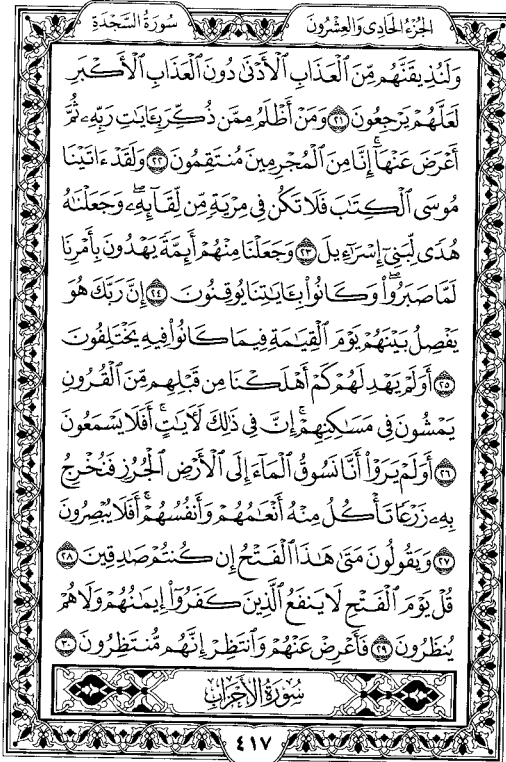 الجُزْءُ الحَادِي وَالعِشْرُونَ سُورَةُ السَّجْدَةِ
وَلَنُذِيقَنَّهُم مِّنَ ٱلْعَذَابِ ٱلْأَدْنَىٰ دُونَ ٱلْعَذَابِ ٱلْأَكْبَرِ
لَعَلَّهُمْ يَرْجِعُونَ ٢١ وَمَنْ أَظْلَمُ مِمَّن ذُكِّرَ بِـَٔايَٰتِ رَبِّهِۦ ثُمَّ
أَعْرَضَ عَنْهَآ ۚ إِنَّا مِنَ ٱلْمُجْرِمِينَ مُنتَقِمُونَ ٢٢ وَلَقَدْ ءَاتَيْنَا
مُوسَى ٱلْكِتَٰبَ فَلَا تَكُن فِى مِرْيَةٍ مِّن لِّقَآئِهِۦ ۖ وَجَعَلْنَٰهُ
هُدًى لِّبَنِىٓ إِسْرَٰٓءِيلَ ٢٣ وَجَعَلْنَا مِنْهُمْ أَئِمَّةً يَهْدُونَ بِأَمْرِنَا
لَمَّا صَبَرُوا۟ ۖ وَكَانُوا۟ بِـَٔايَٰتِنَا يُوقِنُونَ ٢٤ إِنَّ رَبَّكَ هُوَ
يَفْصِلُ بَيْنَهُمْ يَوْمَ ٱلْقِيَٰمَةِ فِيمَا كَانُوا۟ فِيهِ يَخْتَلِفُونَ
٢٥ أَوَلَمْ يَهْدِ لَهُمْ كَمْ أَهْلَكْنَا مِن قَبْلِهِم مِّنَ ٱلْقُرُونِ
يَمْشُونَ فِى مَسَٰكِنِهِمْ ۚ إِنَّ فِى ذَٰلِكَ لَـَٔايَٰتٍ ۖ أَفَلَا يَسْمَعُونَ
٢٦ أَوَلَمْ يَرَوْا۟ أَنَّا نَسُوقُ ٱلْمَآءَ إِلَى ٱلْأَرْضِ ٱلْجُرُزِ فَنُخْرِجُ
بِهِۦ زَرْعًا تَأْكُلُ مِنْهُ أَنْعَٰمُهُمْ وَأَنفُسُهُمْ ۖ أَفَلَا يُبْصِرُونَ
٢٧ وَيَقُولُونَ مَتَىٰ هَٰذَا ٱلْفَتْحُ إِن كُنتُمْ صَٰدِقِينَ ٢٨
قُلْ يَوْمَ ٱلْفَتْحِ لَا يَنفَعُ ٱلَّذِينَ كَفَرُوٓا۟ إِيمَٰنُهُمْ وَلَا هُمْ
يُنظَرُونَ ٢٩ فَأَعْرِضْ عَنْهُمْ وَٱنتَظِرْ إِنَّهُم مُّنتَظِرُونَ ٣٠
سُورَةُ الأَحْزَابِ
٤١٧